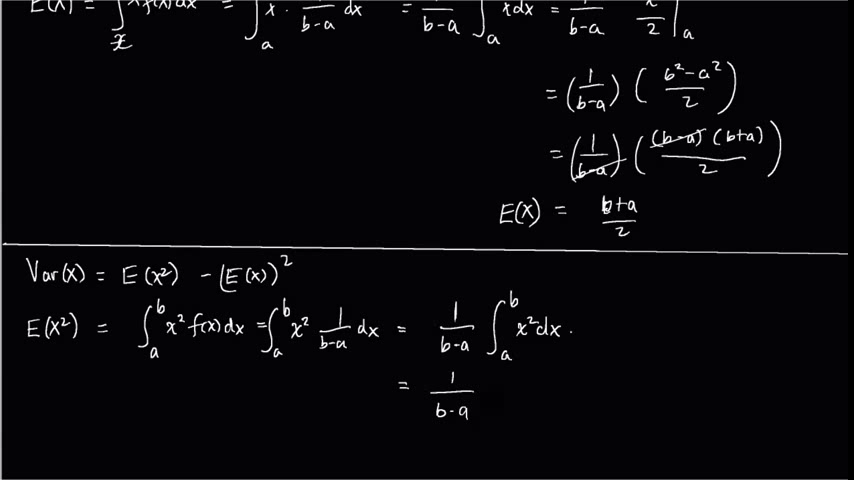 E(X) = ∫ x f(x) dx = ∫_a x · 1/(b-a) dx = 1/(b-a) ∫_a x dx = 1/(b-a) x/2 |_a
= (1/(b-a)) ((b²-a²)/2)
= (1/(b-a)) ((b-a)(b+a)/2)
E(X) = (b+a)/2
Var(X) = E(X²) - (E(X))²
E(X²) = ∫_a^b x² f(x) dx = ∫_a^b x² 1/(b-a) dx = 1/(b-a) ∫_a^b x² dx.
= 1/(b-a)